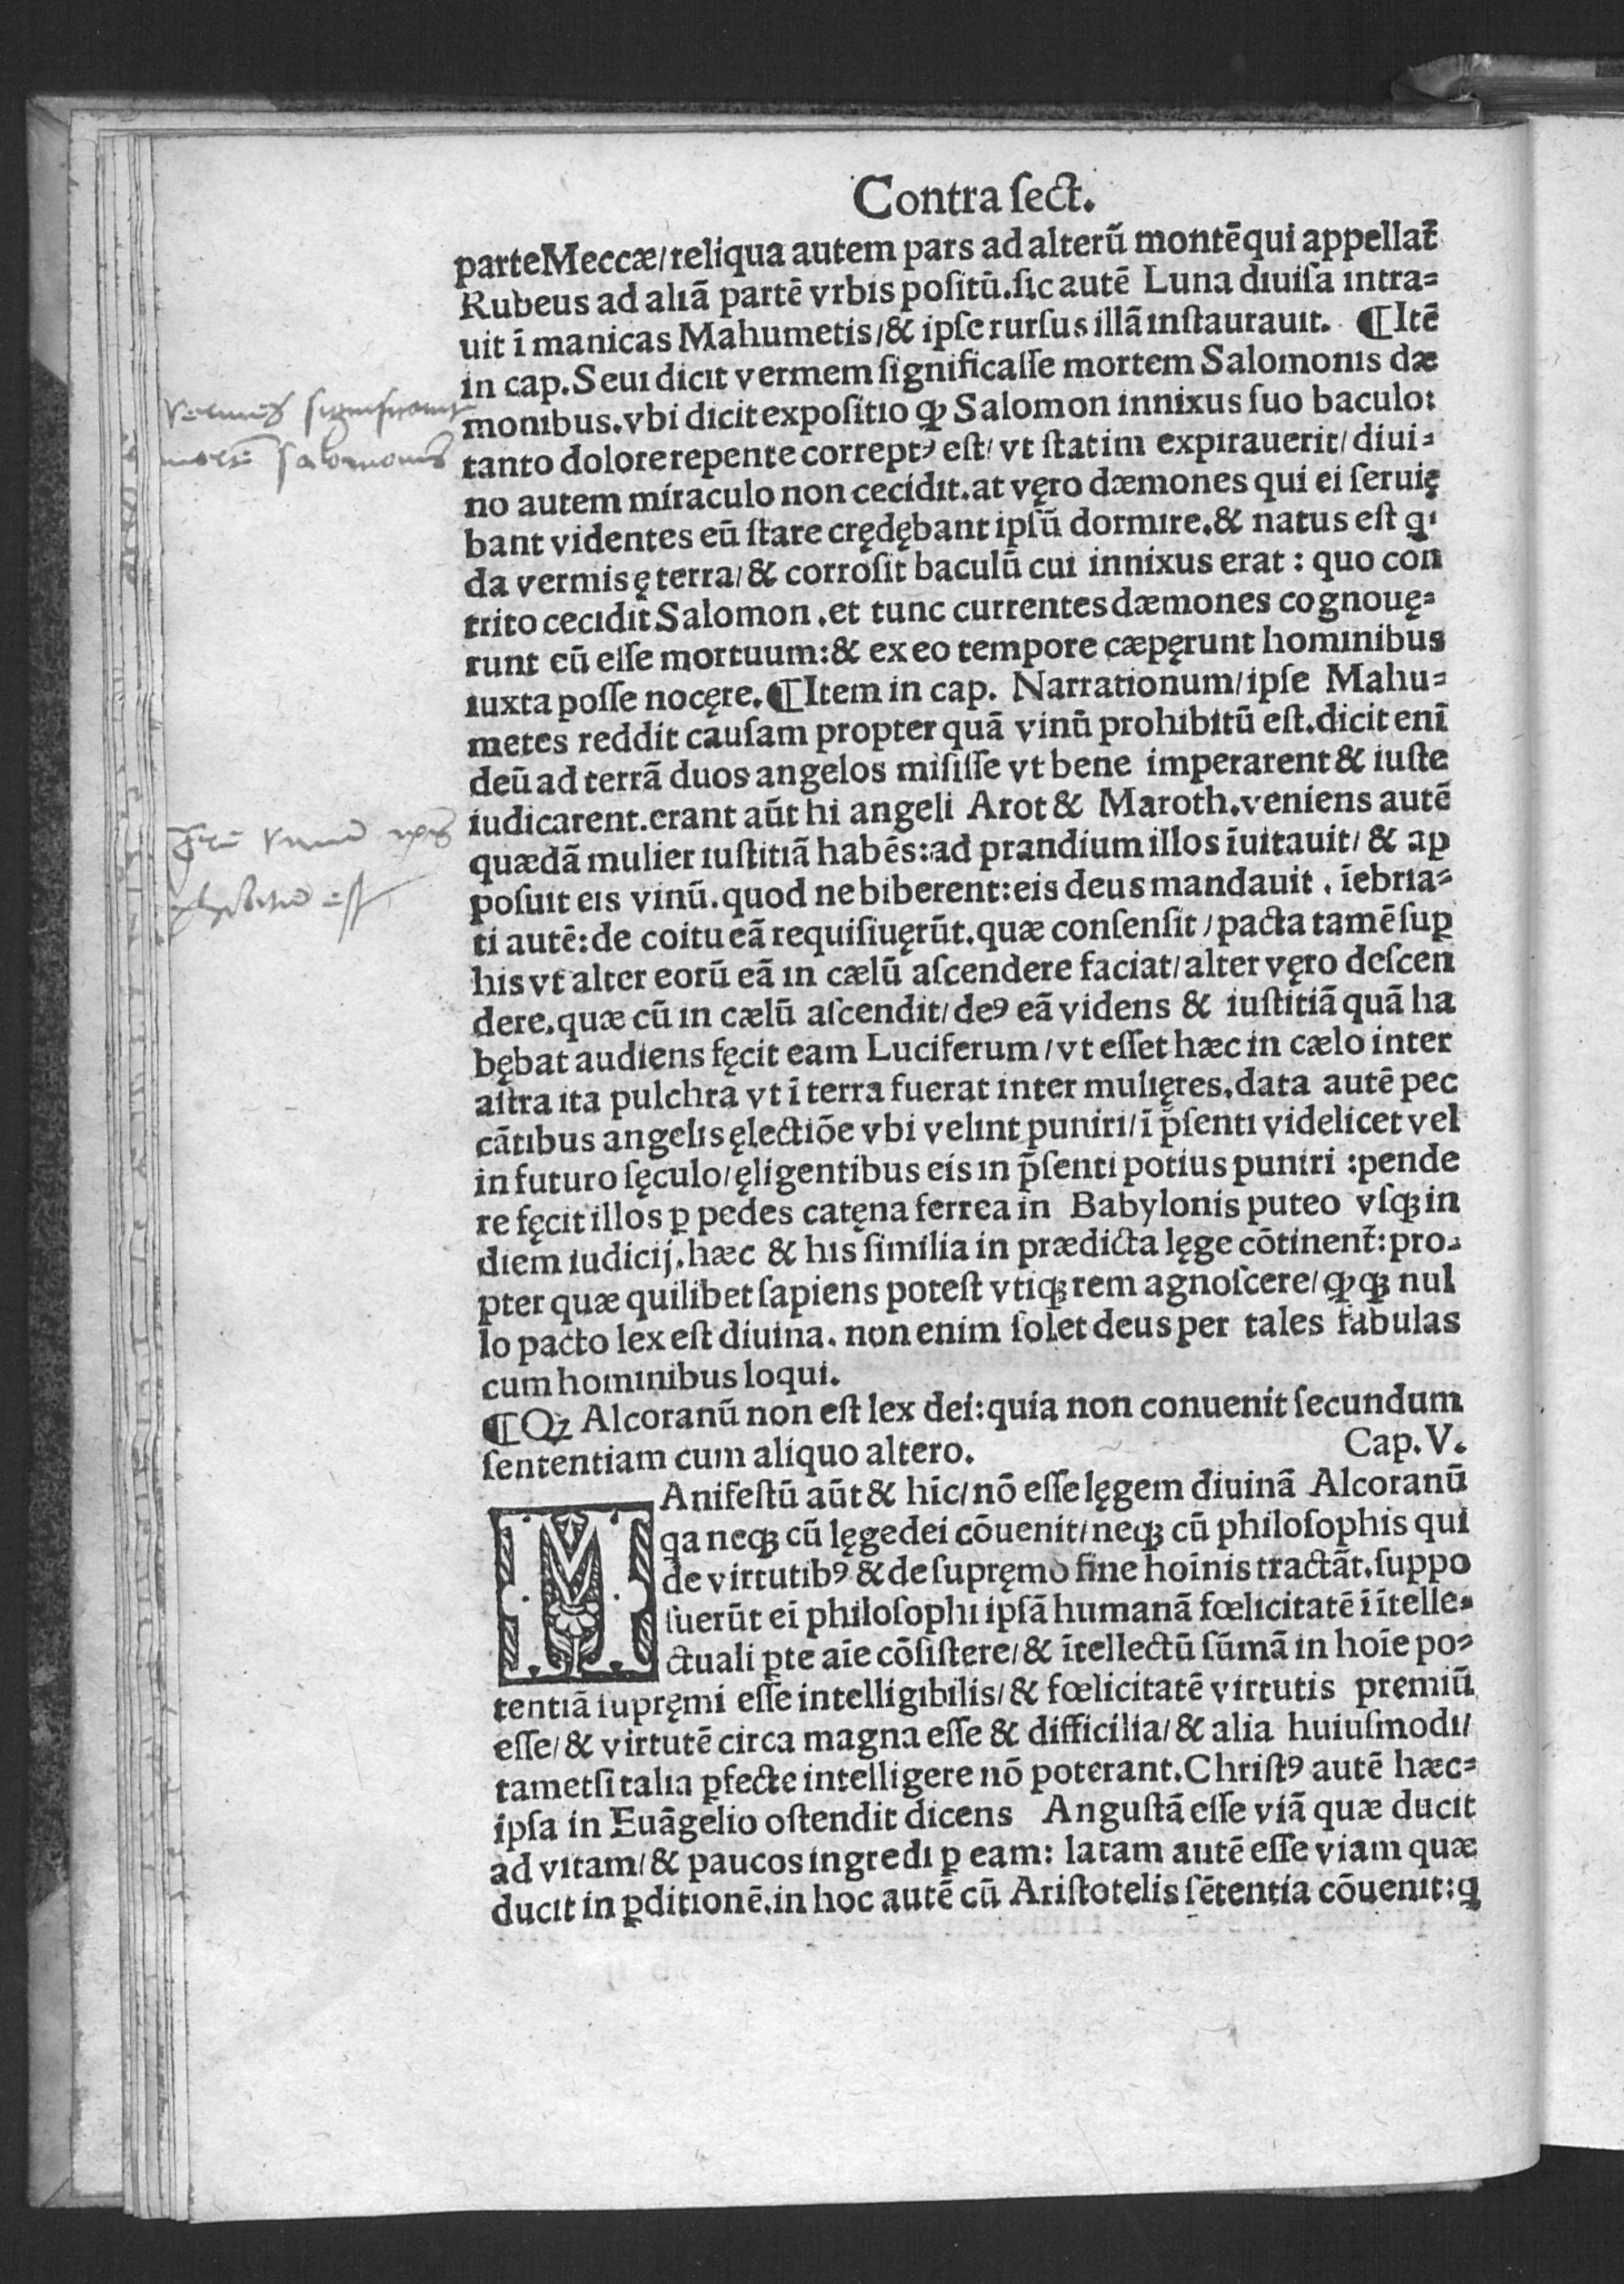 Contra ſect.
parte Meccæ/ reliqua autem pars ad alterū montē qui appellat̄
Rubeus ad aliā partē vrbis poſitū. ſic autē Luna diuiſa intra⸗
uit ī manicas Mahumetis/ & ipſe rurſus illā inſtaurauit. ¶Itē
in cap. Seui dicit vermem ſignificaſſe mortem Salomonis dæ
monibus. vbi dicit expoſitio ꝙ Salomon innixus ſuo baculo:
tanto dolore repente correptꝰ eſt/ vt ſtatim expirauerit/ diui⸗
no autem miraculo non cecidit. at vęro dæmones qui ei ſeruię
bant videntes eū ſtare crędębant ipſū dormire. & natus eſt qͥ
da vermis ę terra/ & corroſit baculū cui innixus erat: quo con
trito cecidit Salomon. et tunc currentes dæmones cognouę⸗
runt eū eſſe mortuum: & ex eo tempore cæpęrunt hominibus
iuxta poſſe nocęre. ¶Item in cap. Narrationum/ ipſe Mahu⸗
metes reddit cauſam propter quā vinū prohibitū eſt. dicit enī
deū ad terrā duos angelos miſiſſe vt bene imperarent & iuſte
iudicarent. erant aūt hi angeli Arot & Maroth. veniens autē
quædā mulier iuſtitiā habēs: ad prandium illos īuitauit/ & ap
poſuit eis vinū. quod ne biberent: eis deus mandauit. īebria⸗
ti autē: de coitu eā requiſiuęrūt. quæ conſenſit/ pacta tamē ſuꝑ
his vt alter eorū eā in cælū aſcendere faciat/ alter vęro deſcen
dere. quæ cū in cælū aſcendit/ deꝰ eā videns & iuſtitiā quā ha
bębat audiens fęcit eam Luciferum/ vt eſſet hæc in cælo inter
aſtra ita pulchra vt ī terra fuerat inter mulięres. data autē pec
cātibus angelis ęlectiōe vbi velint puniri/ ī p̄ſenti videlicet vel
in futuro ſęculo/ ęligentibus eis in p̄ſenti potius puniri: pende
re fęcit illos ꝑ pedes catęna ferrea in Babylonis puteo vſqꝫ in
diem iudicij. hæc & his ſimilia in prædicta lęge cōtinent̄: pro⸗
pter quæ quilibet ſapiens poteſt vtiqꝫ rem agnoſcere/ ꝙqꝫ nul
lo pacto lex eſt diuina. non enim ſolet deus per tales fabulas
cum hominibus loqui.
¶Qꝫ Alcoranū non eſt lex dei: quia non conuenit ſecundum
ſententiam cum aliquo altero. Cap. V.
MAnifeſtū aūt & hic/ nō eſſe lęgem diuinā Alcoranū
qa neqꝫ cū lęge dei cōuenit/ neqꝫ cū philoſophis qui
de virtutibꝰ & de ſupręmo fine hoīnis tractāt. ſuppo
ſuerūt eī philoſophi ipſā humanā fœlicitatē ī ītelle⸗
ctuali ꝑte aīe cōſiſtere/ & ītellectū ſūmā in hoīe po⸗
tentiā ſupręmi eſſe intelligibilis/ & fœlicitatē virtutis premiū
eſſe/ & virtutē circa magna eſſe & difficilia/ & alia huiuſmodi/
tametſi talia ꝑfecte intelligere nō poterant. Chriſtꝰ autē hæc⸗
ipſa in Euāgelio oſtendit dicens Anguſtā eſſe viā quæ ducit
ad vitam/ & paucos ingredi ꝑ eam: latam autē eſſe viam quæ
ducit in ꝑditionē. in hoc autē cū Ariſtotelis ſētentia cōuenit: ꝗ